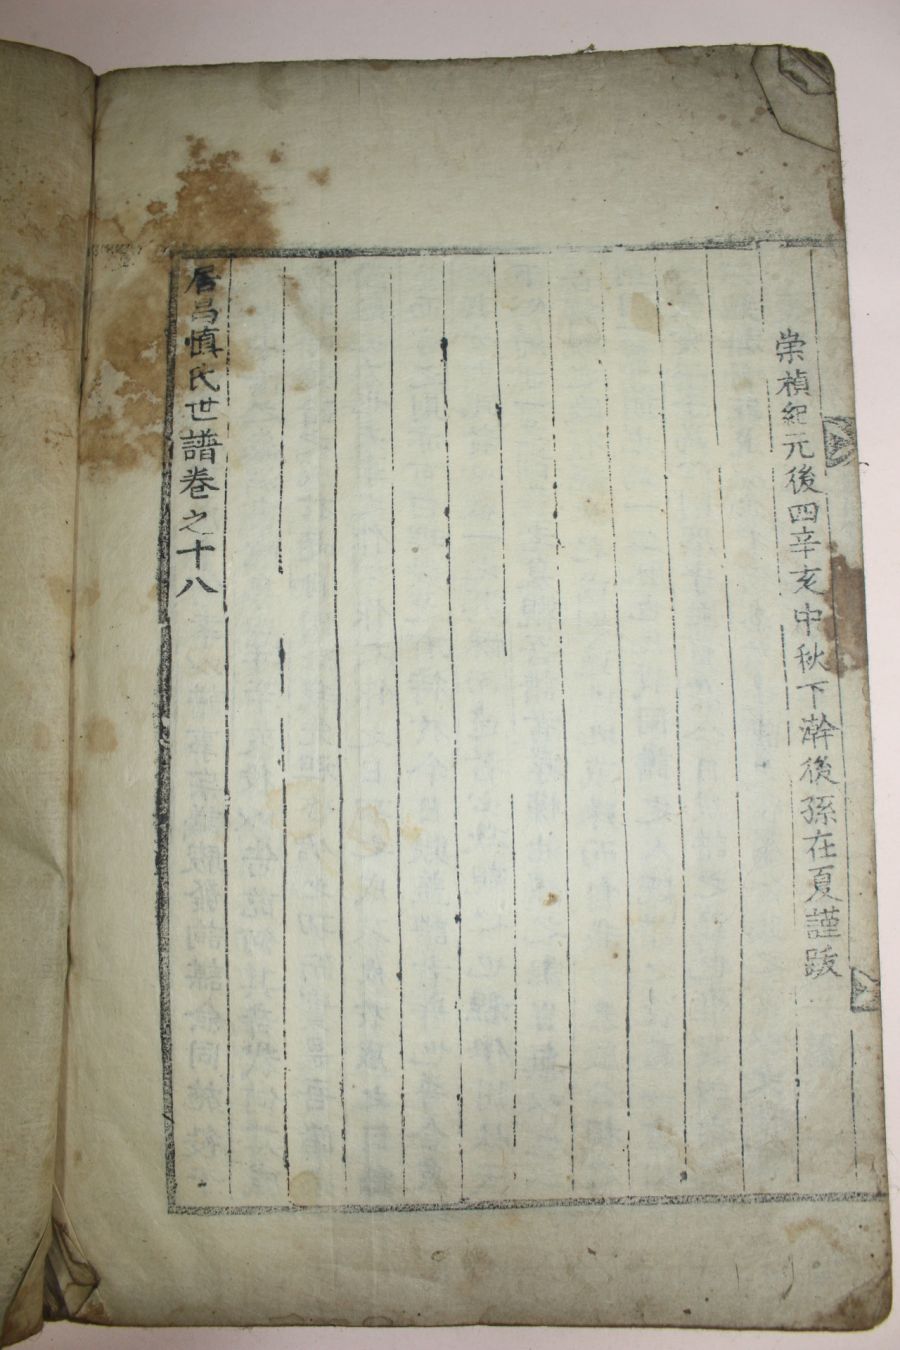 崇禎紀元後四辛亥中秋下澣後孫在夏謹跋
居昌愼氏世譜卷之十八